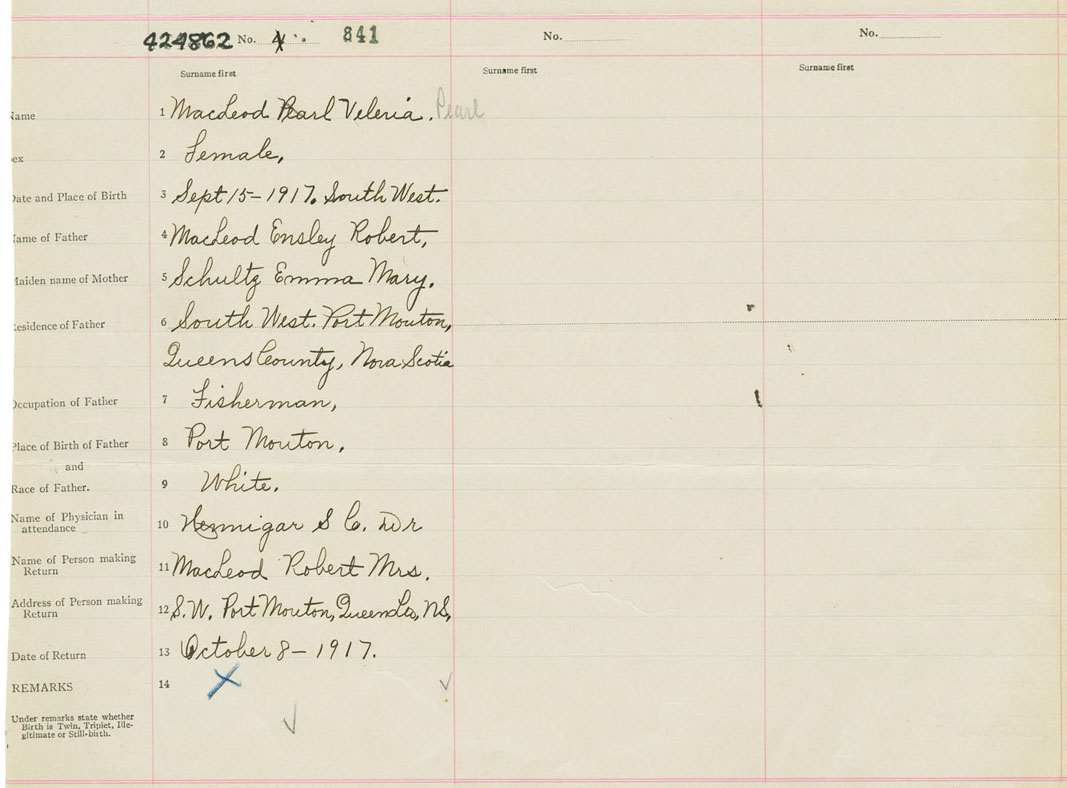 424862 No. 841 No. No.
Surname first Surname first Surname first
Name 1 MacLeod Pearl Veleria. Pearl
ex 2 Female,
Date and Place of Birth 3 Sept 15-1917. South West.
Name of Father 4 MacLeod Ensley Robert,
Maiden name of Mother 5 Schultz Emma Mary.
Residence of Father 6 South West. Port Mouton,
Queens County, Nova Scotia
Occupation of Father 7 Fisherman,
Place of Birth of Father 8 Port Mouton.
and
Race of Father. 9 White.
Name of Physician in
attendance 10 Hennigar S C. Dr
Name of Person making
Return 11 MacLeod Robert Mrs.
Address of Person making
Return 12 S.W. Port Mouton, Queens Co, NS,
Date of Return 13 October 8-1917.
REMARKS 14
Under remarks state whether
Birth is Twin, Triplet, Ille-
gitimate or Still-birth.